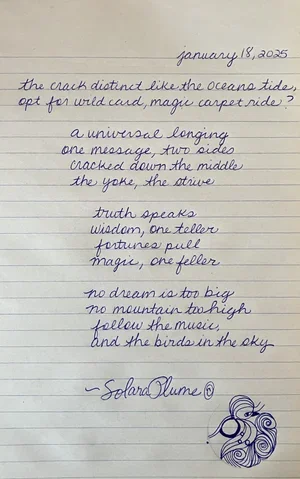 january 18, 2025
the crack distinct like the oceans tide,
opt for wild card, magic carpet ride?
a universal longing
one message, two sides
cracked down the middle
the yoke, the strive
truth speaks
wisdom, one teller
fortunes pull
magic, one feller
no dream is too big
no mountain too high
follow the music,
and the birds in the sky
~SolaraPlume©